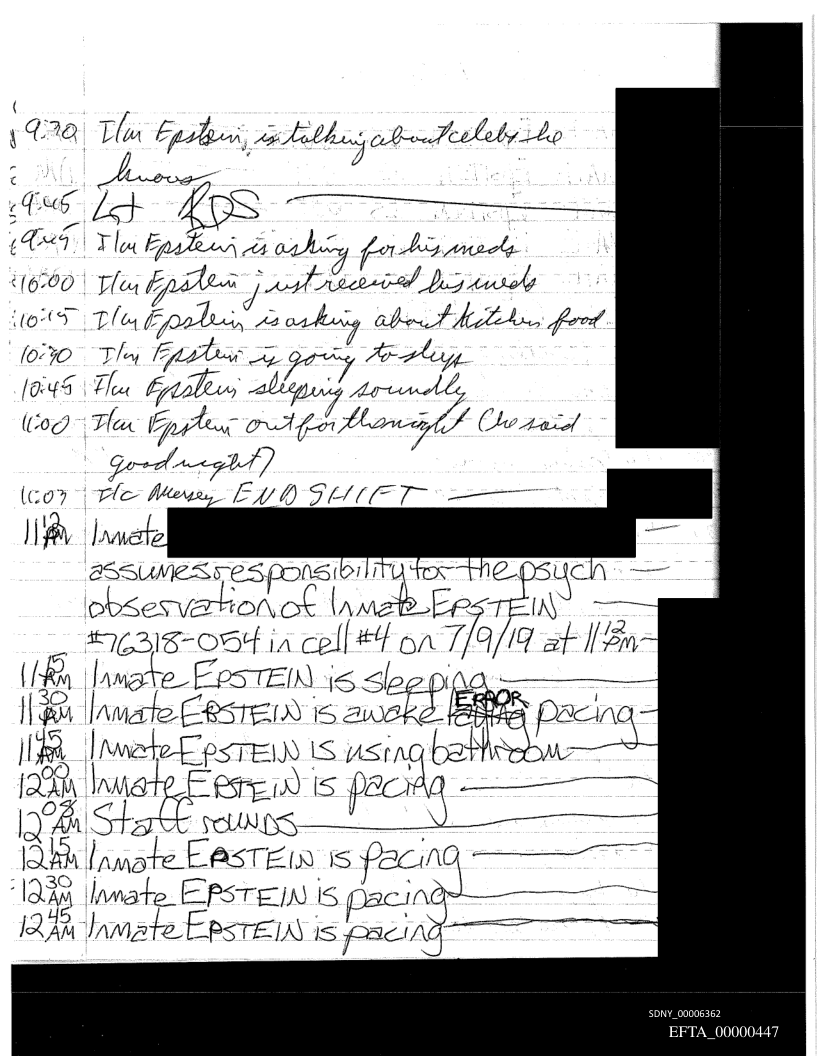 9:30 I/m Epstein, is talking about celebs he
knows
9:45 Lt RDS
9:45 I/m Epstein is asking for his meds
10:00 I/m Epstein just received his meds
10:15 I/m Epstein is asking about kitchen food
10:30 I/m Epstein is going to sleep
10:45 I/m Epstein sleeping soundly
11:00 I/m Epstein out for the night (he said
goodnight)
11:03 I/c END SHIFT
11 12 PM Inmate
assumes responsibility for the psych
observation of Inmate EPSTEIN
#76318-054 in cell #4 on 7/9/19 at 11 12 PM
11 15 PM Inmate EPSTEIN is sleeping
11 30 PM Inmate EPSTEIN is awake ERROR pacing
11 45 PM Inmate EPSTEIN is using bathroom
12 00 AM Inmate EPSTEIN is pacing
12 08 AM Staff rounds
12 15 AM Inmate EPSTEIN is pacing
12 30 AM Inmate EPSTEIN is pacing
12 45 AM Inmate EPSTEIN is pacing
SDNY_00006362
EFTA_00000447